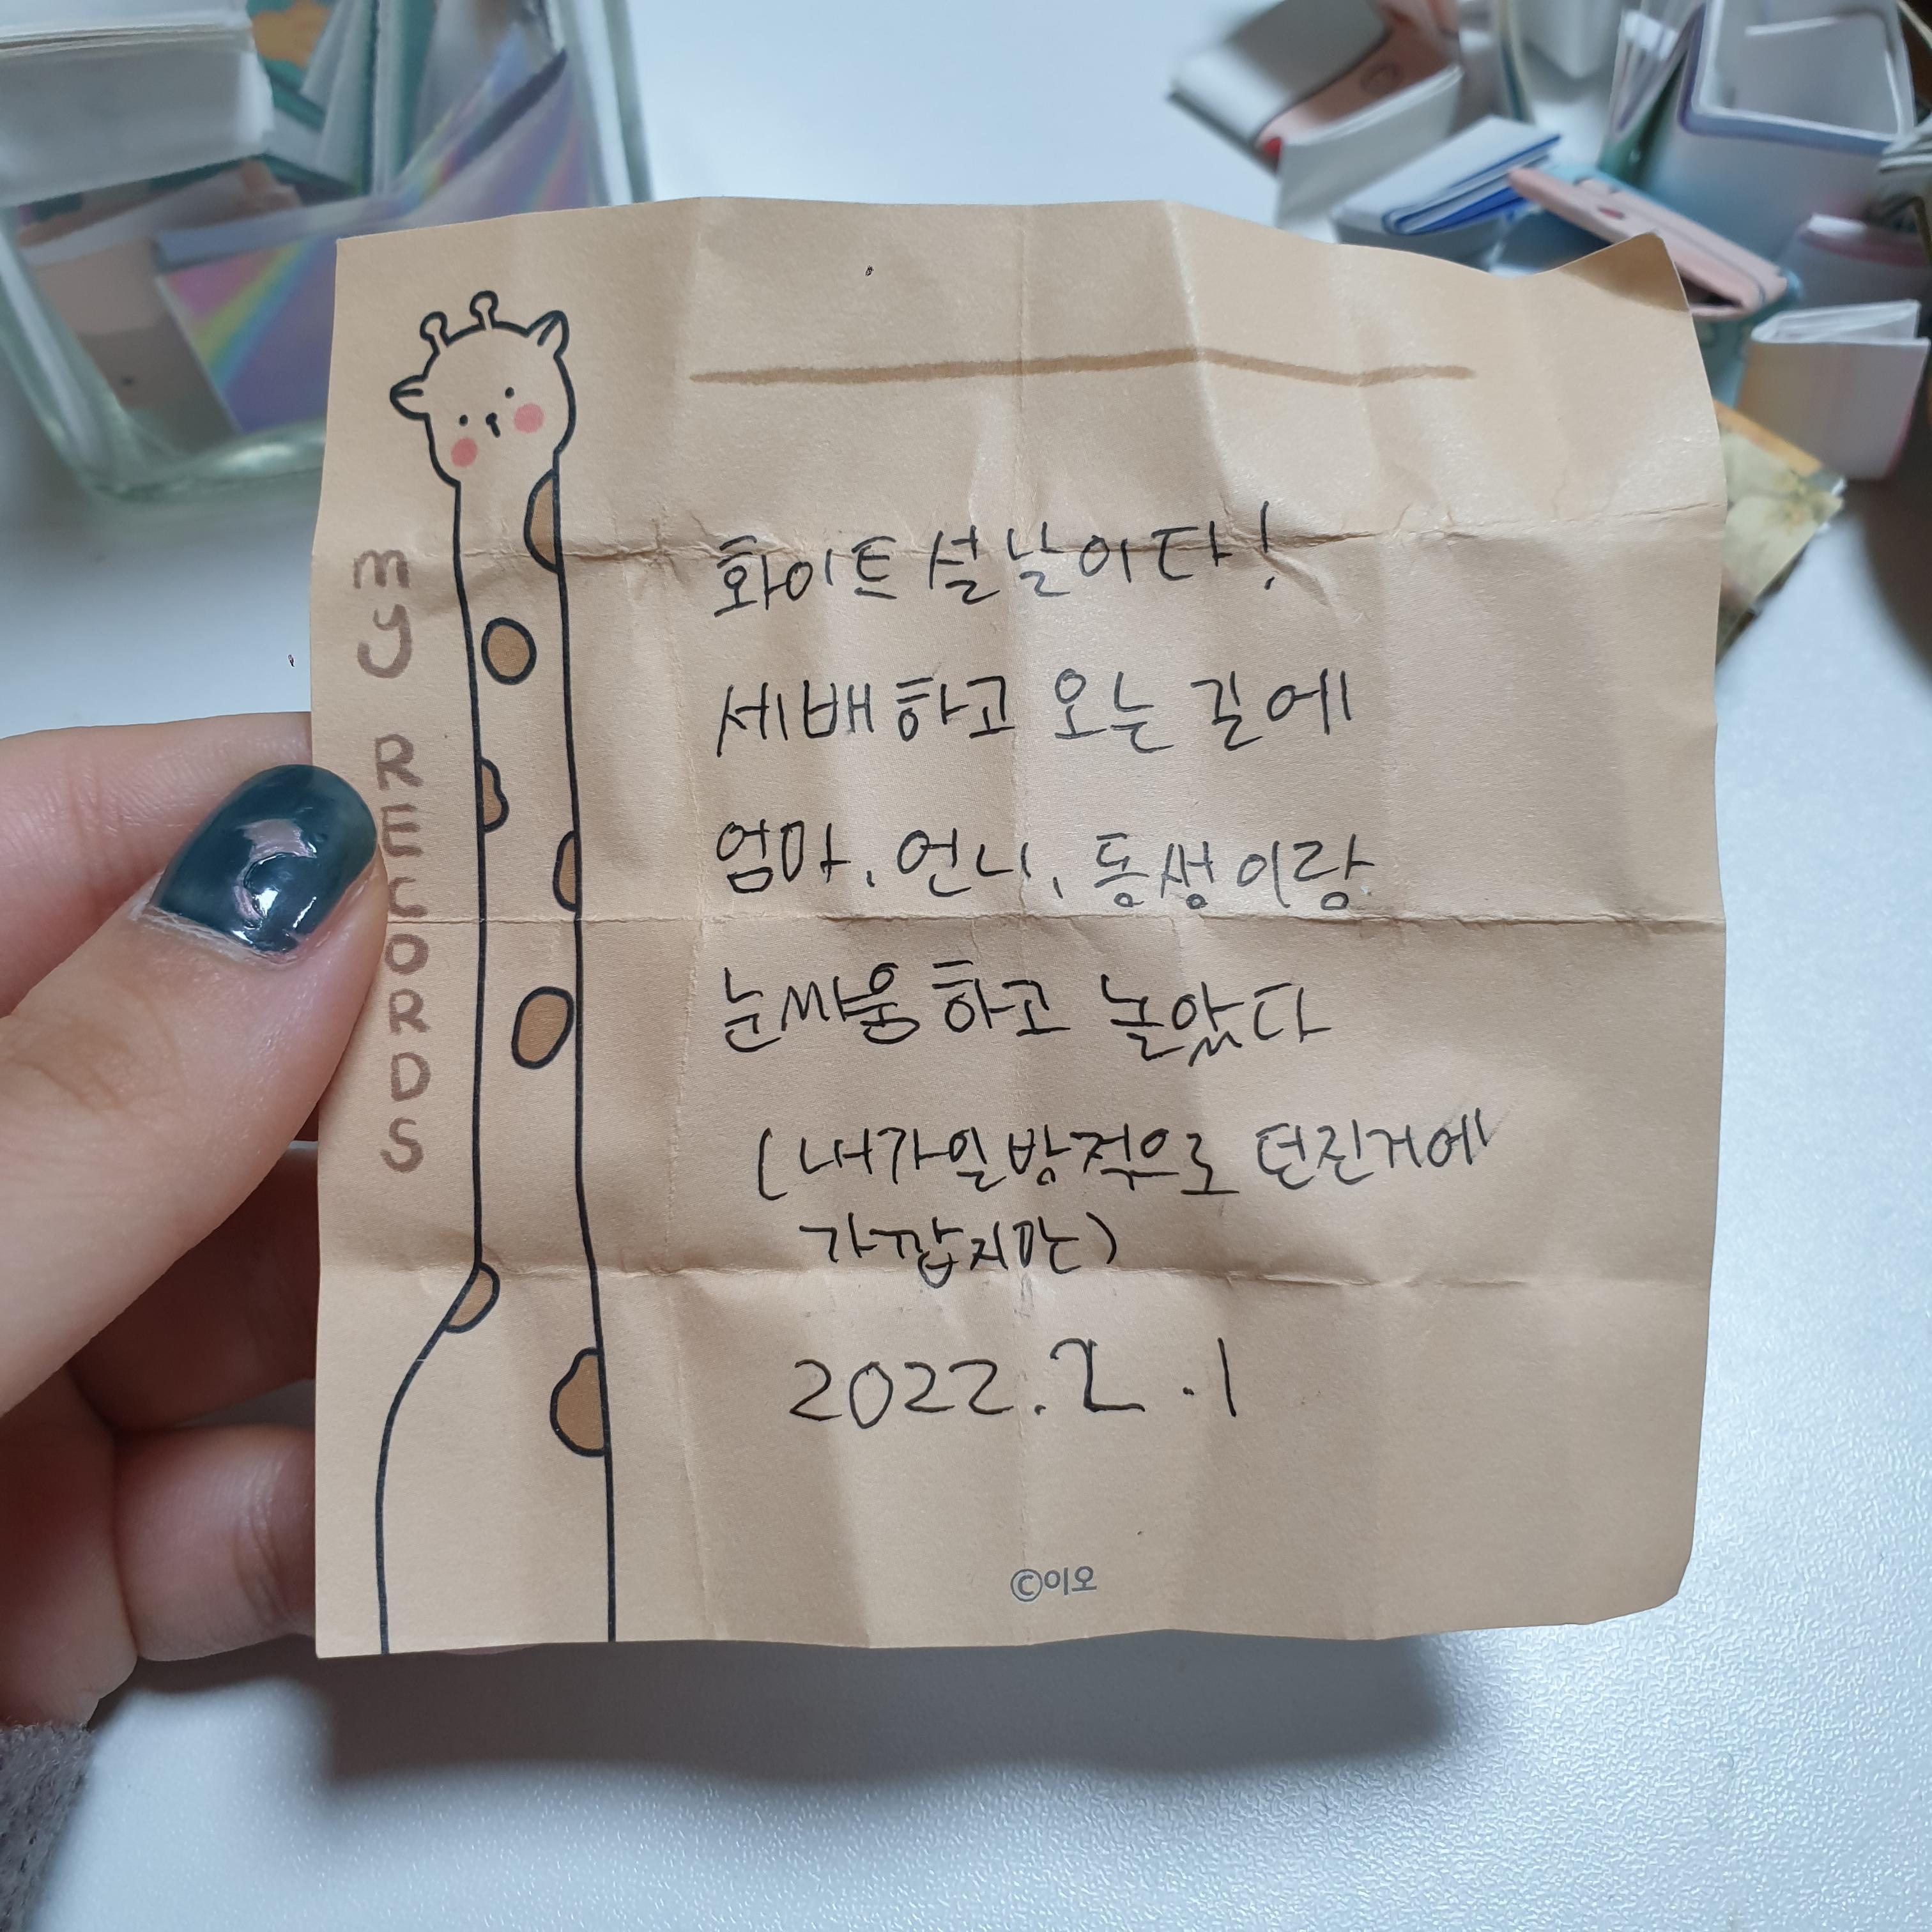 my RECORDS
화이트 설날이다!
세배하고 오는 길에
엄마, 언니, 동생이랑
눈싸움하고 놀았다
(내가 일방적으로 던진거에
가깝지만)
2022.2.1
©이오